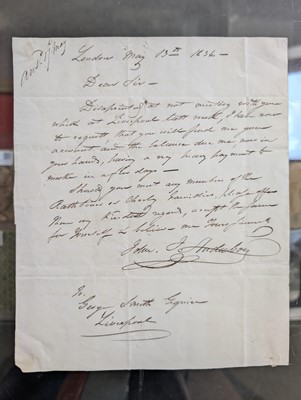 London May 13th 1836 -
Dear Sir -
Disapointed at not meeting with you
while at Liverpool last week, I have now
to request that you will send me your
account and the balance due me now in
your hands, having a very heavy payment to
make in a few days -
Should you meet any member of the
Rathbones or Chorley families, please offer
them my kindest regards, accept the same
for Yourself & believe me Yours sincerely
John J. Audubon
To
George Smith Esquire
Liverpool